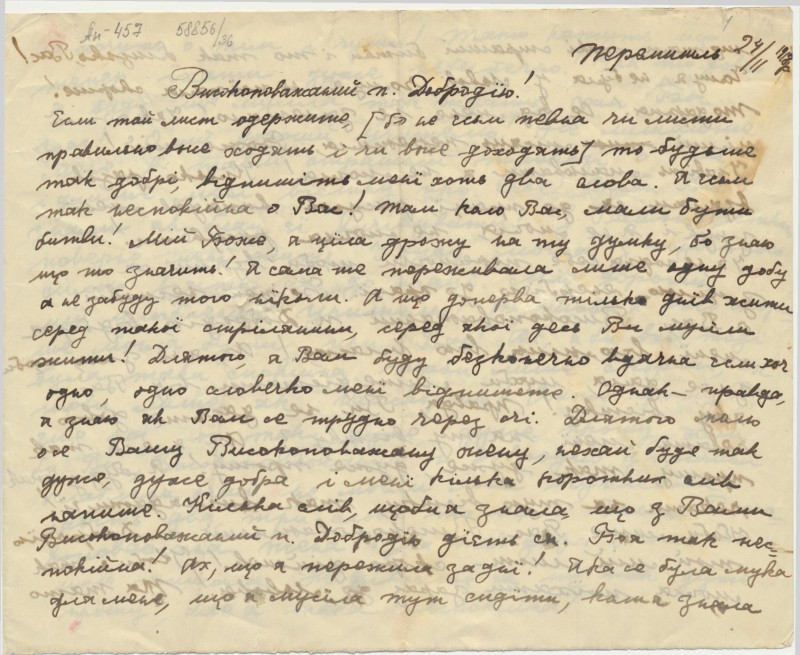 Ап-457 58856/36
Перемишль 24/II 1918р
Високоповажаний п. Добродію!
Если той лист одержите, [бо не єсьм певна чи листи
правильно воне ходять і чи воне доходять] то будьте
так добрі, відпишіть мені хоть два слова. Я єсьм
так неспокійна о Вас! Там коло Вас, мали бути
битви! Мій Боже, я ціла дрожу на ту думку, бо знаю
що то значить! Я сама те переживала лише одну добу
а не забуду того ніколи. А що доперва тілько днів жити
серед такої стрілянини, серед якої десь Ви мусіли
жити! Длятого, я Вам буду безконечно вдячна єсли хоч
одно, одно словечко мені відпишете. Однак – правда,
я знаю як Вам се трудно через очі. Длятого молю
о се Вашу Високоповажану жену, нехай буде так
дуже, дуже добра і мені кілька коротких слів
напише. Кілька слів, щоби я знала, що з Вами
Високоповажаний п. Добродію дієть ся. Бо я так нес-
покійна! Ах, що я пережила за дні! Яка се була мука
для мене, що я мусіла тут сидіти, коли я знала